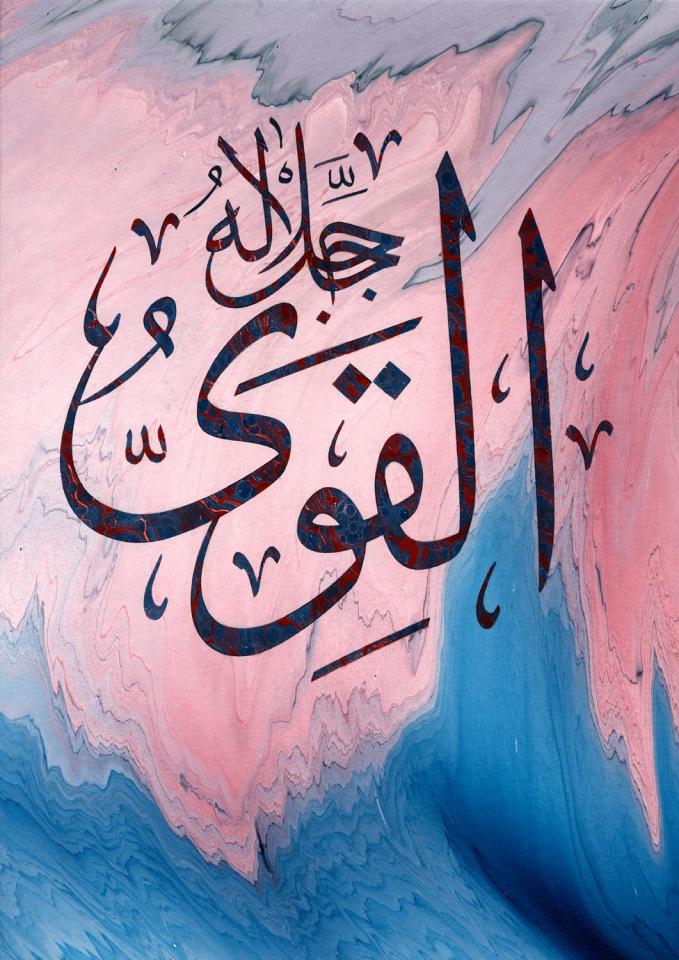 الْقَوِىُّ
جَلَّ جَلَالُهُ